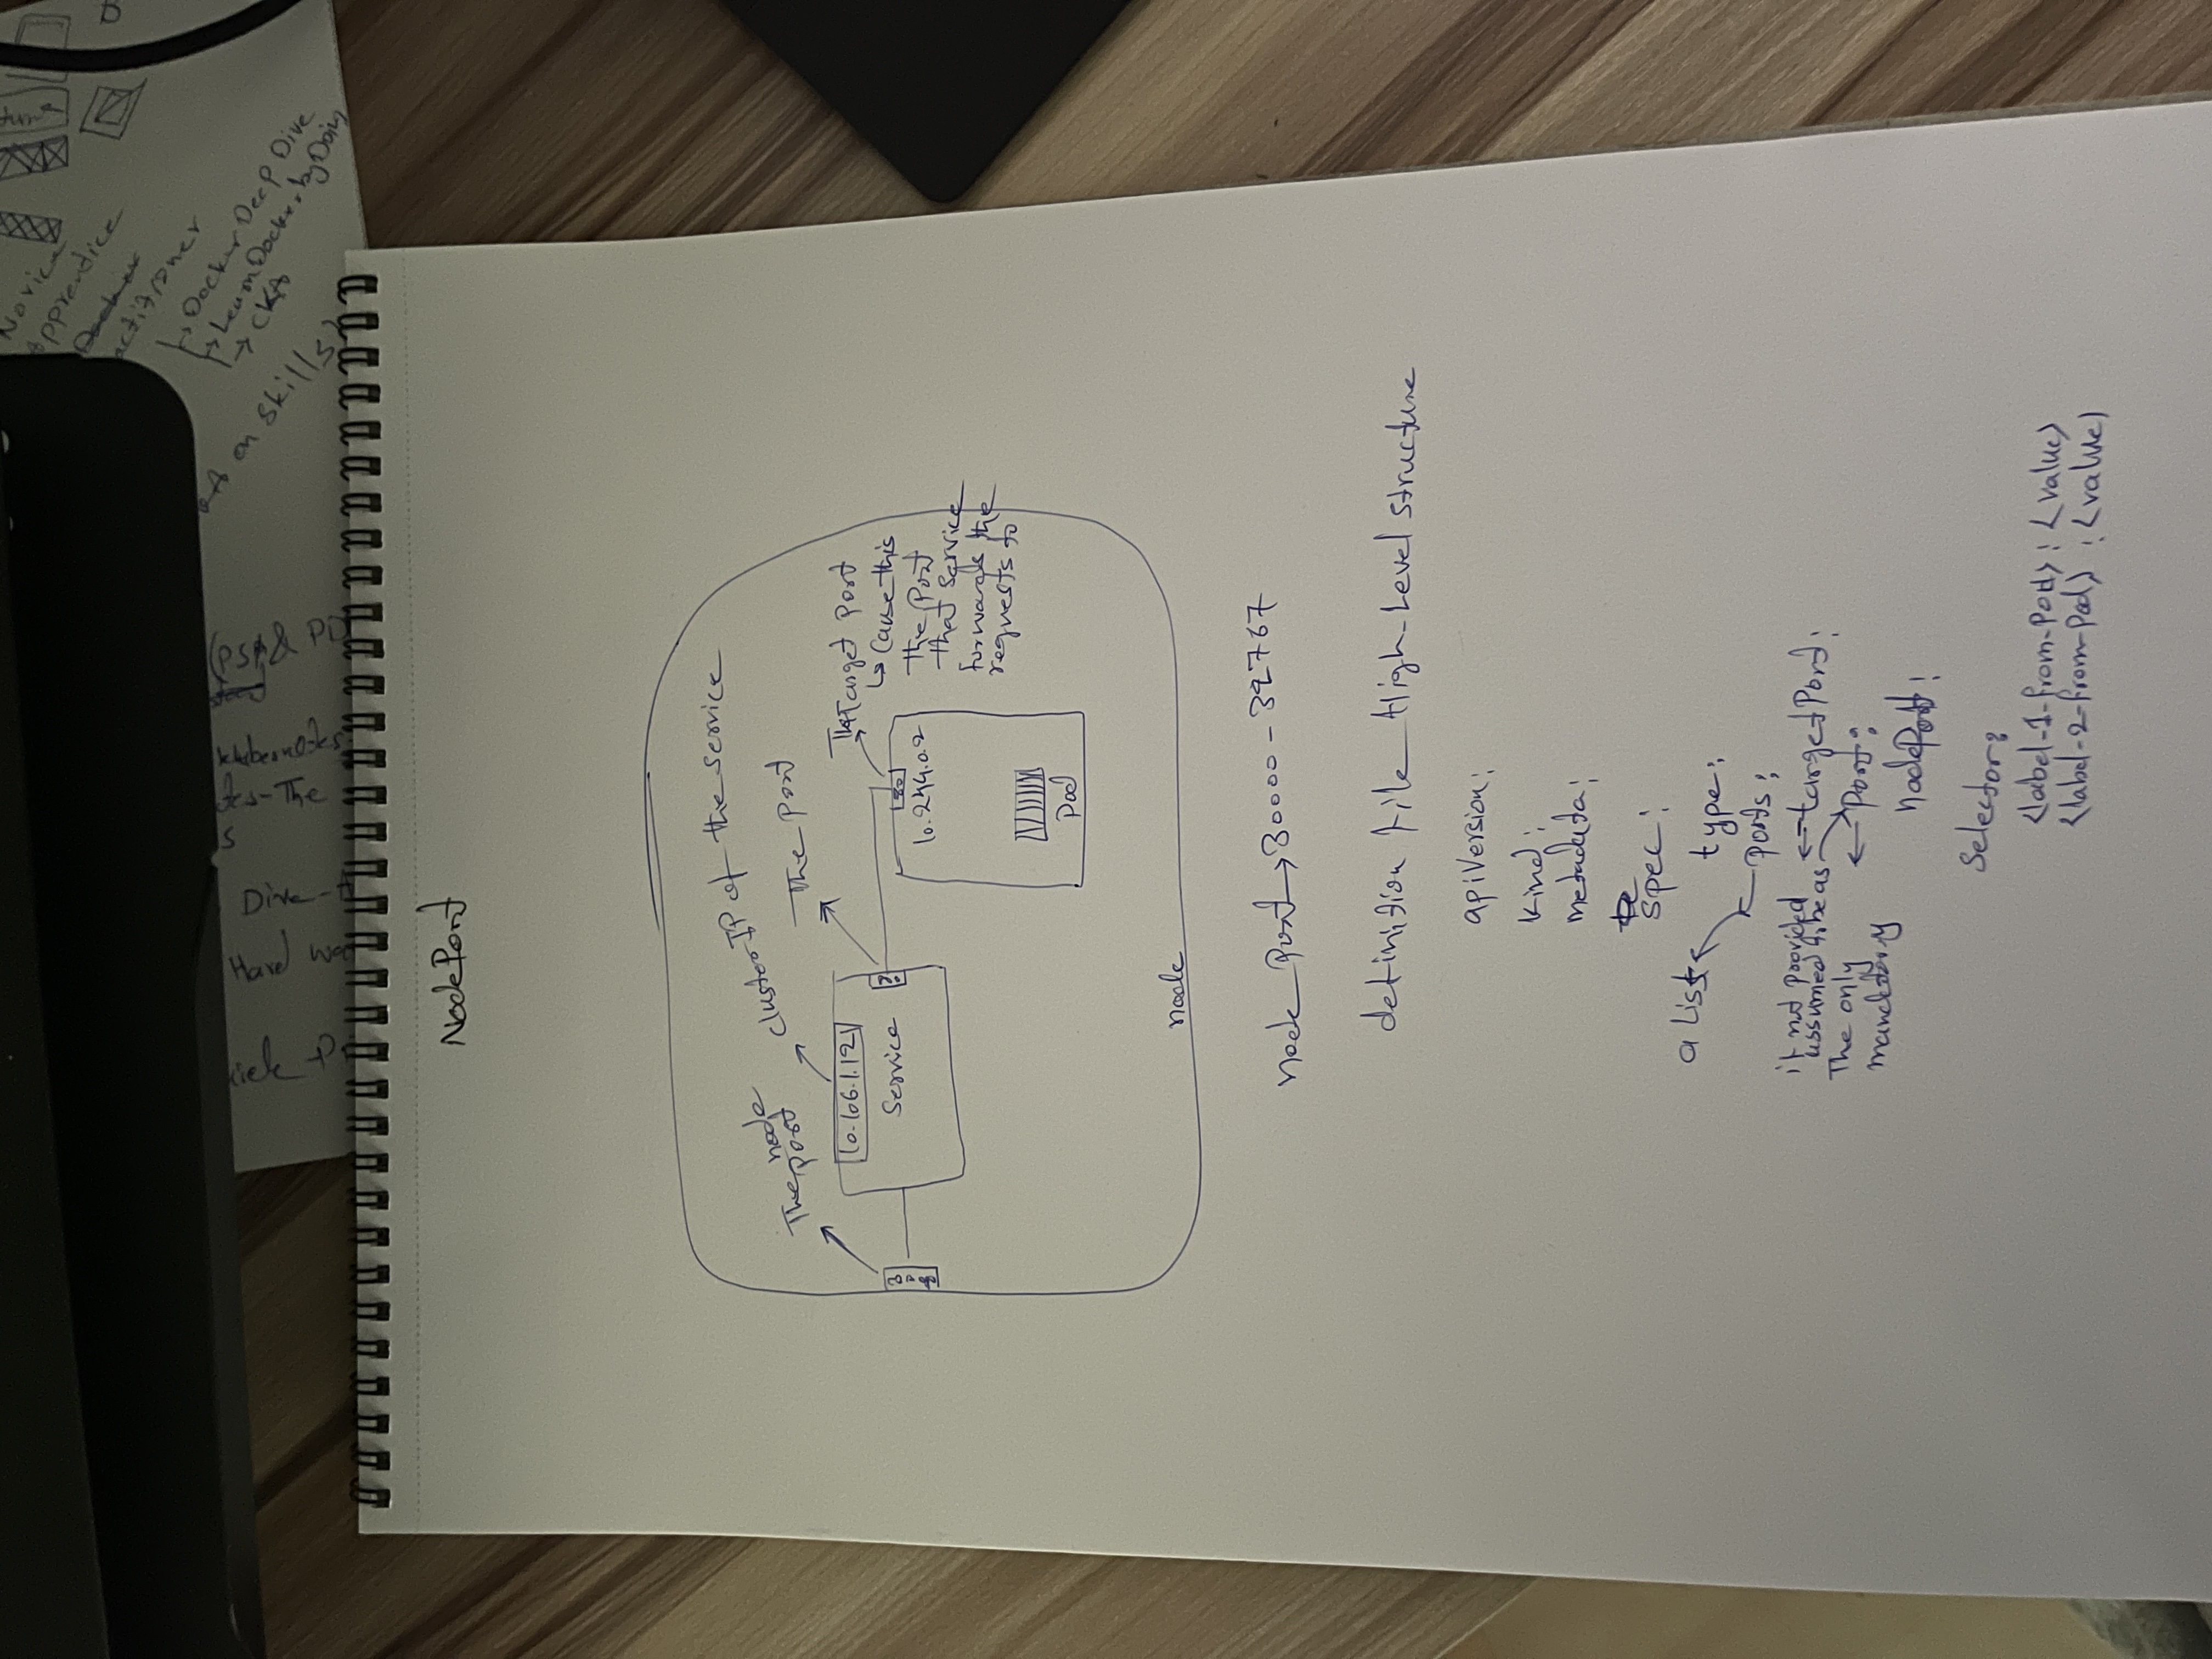 Novice
Apprentice
Docker Deep Dive
Learn Docker by Doin
CKA
on skills
Hard
Dive
kubernetes
The
NodePort
The node
port
cluster IP of the service
The port
10.106.1.121
Service
The Target port
↳ Cause this
the port
that service
forwards the
requests to
80
10.244.0.2
Pod
node
node Port → 30000 - 32767
definition file High-Level structure
apiVersion:
kind:
metadata:
spec:
a list
type:
ports:
if not provided
assumed to be as
targetPort:
The only
mandatory
Port:
nodePort:
Selector:
<label-1-from-Pod> : <value>
<label-2-from-Pod> : <value>